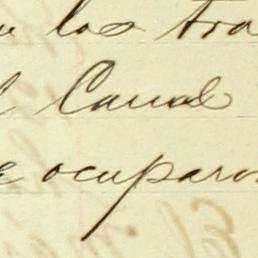 los tra
Canal
ocuparon